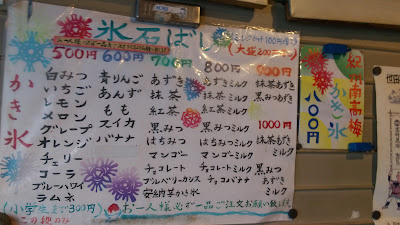 氷石ばし
ミルクかけ100円増
(大盛200円増)
500円 600円 700円 800円 900円
かき氷
白みつ
いちご
レモン
メロン
グレープ
オレンジ
チェリー
コーラ
ブルーハワイ
ラムネ
(小学生まで300円)
青りんご
あんず
もも
スイカ
バナナ
あずき
抹茶
紅茶
黒みつ
はちみつ
マンゴー
チョコレート
ブルーベリーカシス
安納芋かき氷
あずきミルク
抹茶ミルク
紅茶ミルク
黒みつミルク
はちみつミルク
マンゴーミルク
チョコレートミルク
チョコバナナ
抹茶あずき
黒みつあずき
1000円
抹茶あずきミルク
黒みつあずきミルク
お一人様必ず一品ご注文お願い致します
紀州南高梅
かき氷
八〇〇円